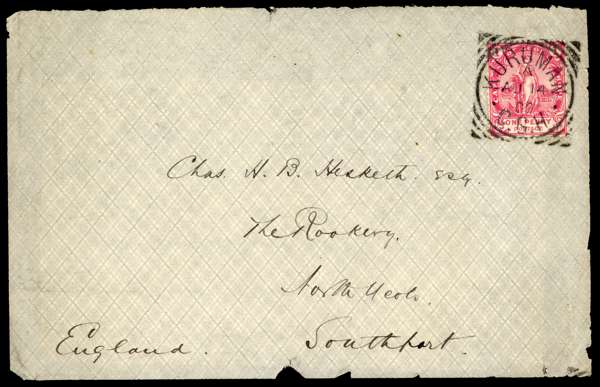 KURUMAN
A
AU 14
00
C.G.H.
ONE PENNY
Chas. H. B. Hesketh. esq.
The Rookery.
North Meols.
Southport.
England.